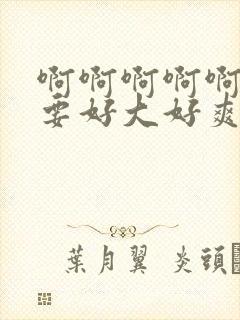 啊啊啊啊啊
要好大好爽
葉月翼 炎頭